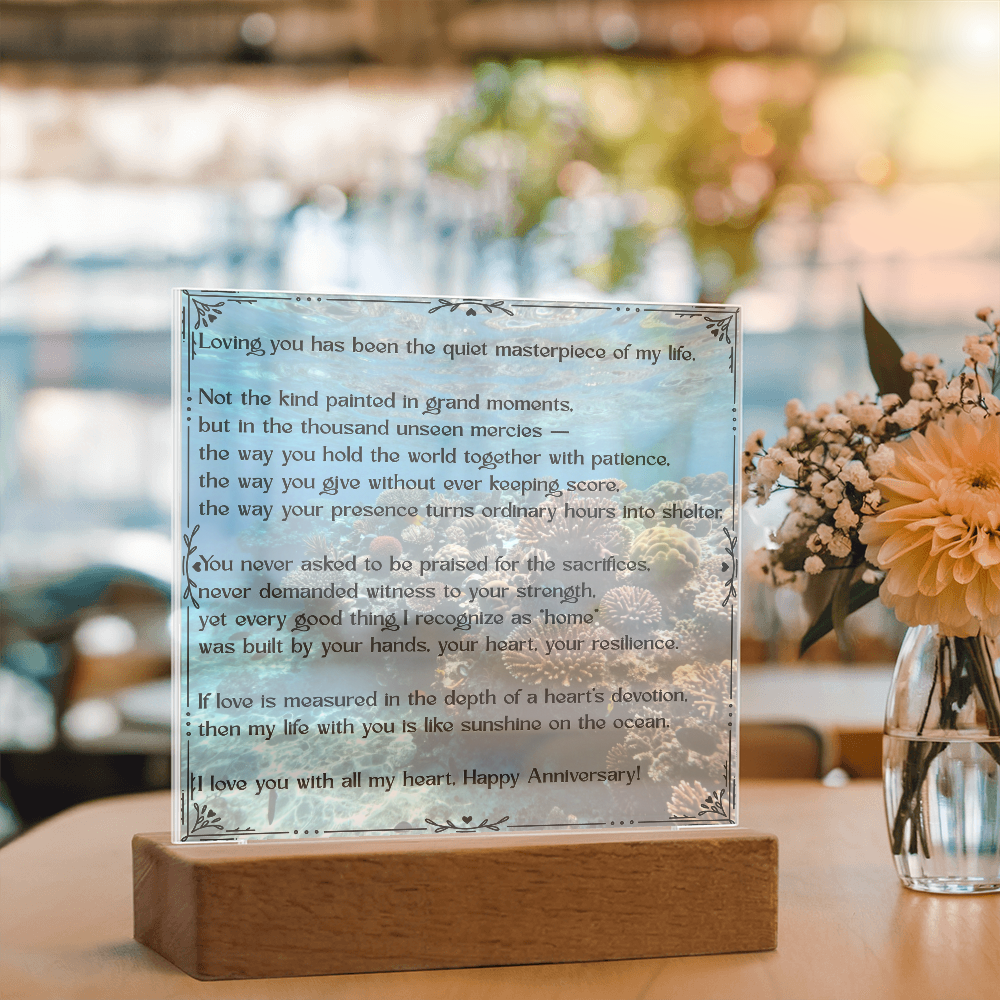 Loving you has been the quiet masterpiece of my life.
Not the kind painted in grand moments,
but in the thousand unseen mercies —
the way you hold the world together with patience,
the way you give without ever keeping score,
the way your presence turns ordinary hours into shelter.
You never asked to be praised for the sacrifices,
never demanded witness to your strength,
yet every good thing I recognize as "home"
was built by your hands, your heart, your resilience.
If love is measured in the depth of a heart's devotion,
then my life with you is like sunshine on the ocean.
I love you with all my heart, Happy Anniversary!